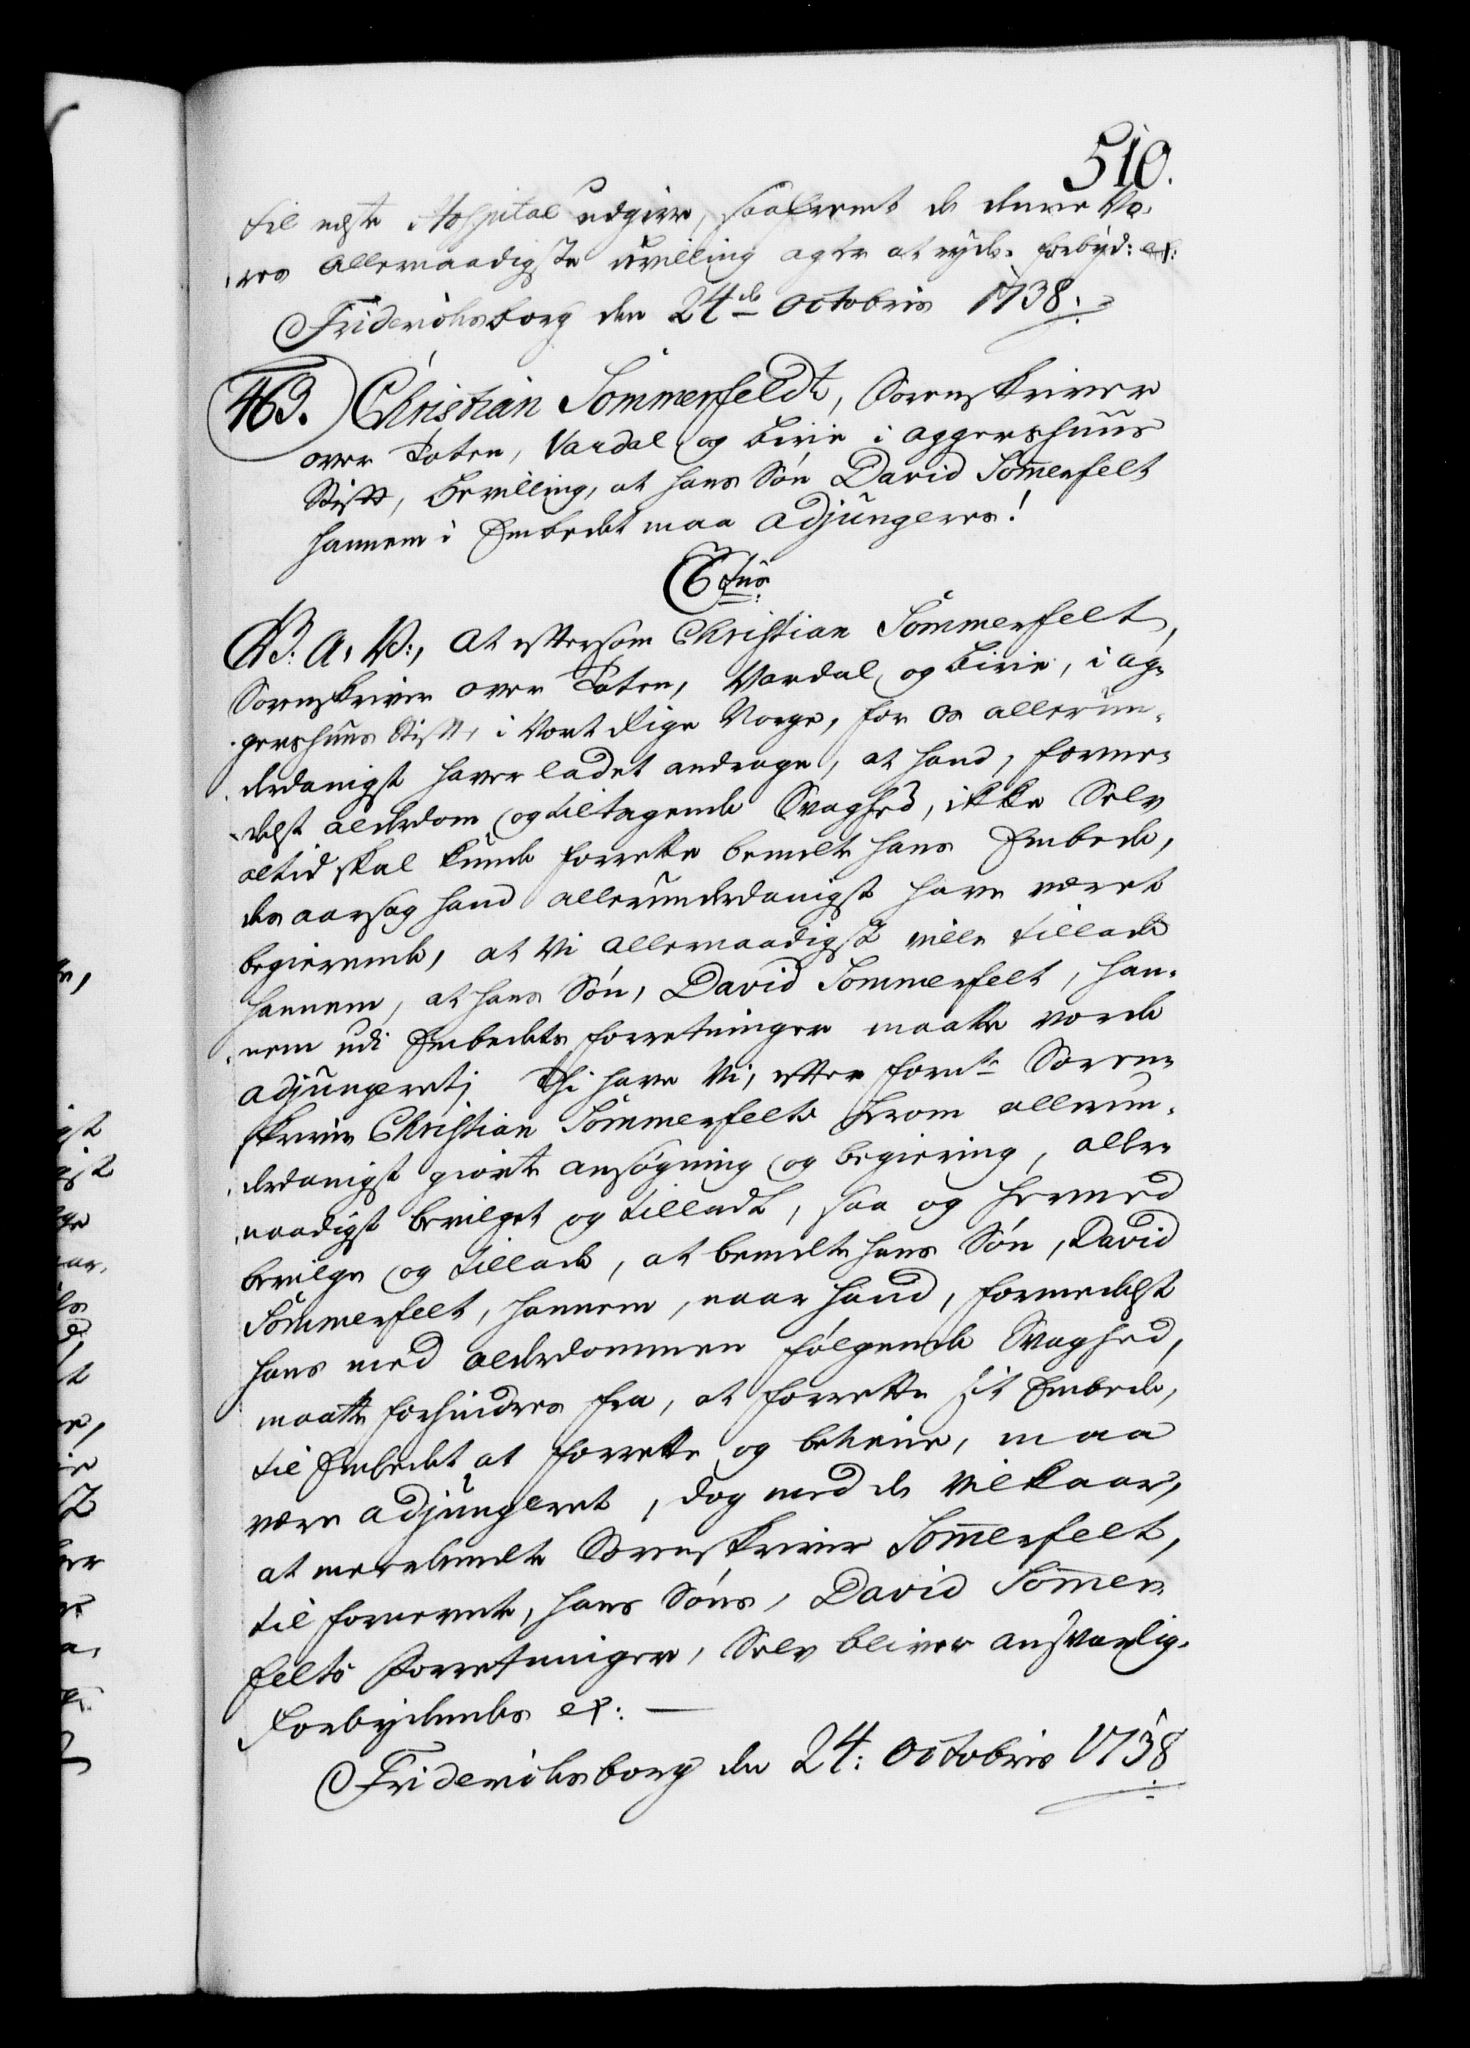 510.
til næste Hospital udgive, saafremt de denne Vo,
res allernaadigste villing agte at nyde. Forbyd: ex:
Friderichsborg den 24de Octobris 1738.
463. Christian Sommerfeldt, Sorenskriver
over Toten, Vardal og Birie i Aggershuus
Stift, Bevilling, at hans Søn David Som̄erfelt
hannem i Embedet maa adjungeres!
C6tus.
G: A: V:, at eftersom Christian Sommerfelt,
Sorenskriver over Toten, Vardal og Birie, i Ag-
gershuus Stift, i Vort Rige Norge, for Os allerun-
derdanigst haver ladet andrage, at hand, forme-
delst alderdom og tiltagende Svaghed, ikke Selv
altid skal kunde forrette bemelte hans Embede,
des aarsag hand allerunderdanigst have været
begierende, at Vi allernaadigst ville tillade
hannem, at hans Søn, David Sommerfelt, han-
nem udi Embedets forretninger maatte vorde
adjungeret; Thi have Vi, efter forn:te Soren-
skriver Christian Sommerfelts herom allerun-
derdanigst giorte ansøgning og begiering, aller-
naadigst bevilget og tilladt, saa og hermed
bevilge og tillade, at bemelte hans Søn, David
Sommerfelt, hannem, naar hand, formedelst
hans med alderdommen følgende Svaghed,
maatte forhindres fra, at forrette sit Embede,
til Embedet at forrette og betiene, maa
være adjungeret, dog med de Vilkaar,
at meerbemelte Sorenskriver Som̄erfelt,
til fornevnte, hans Søns, David Som̄er-
felts Forretninger, Selv bliver ansvarlig.
Forbydendes ex:
Friderichsborg den 24: Octobris 1738